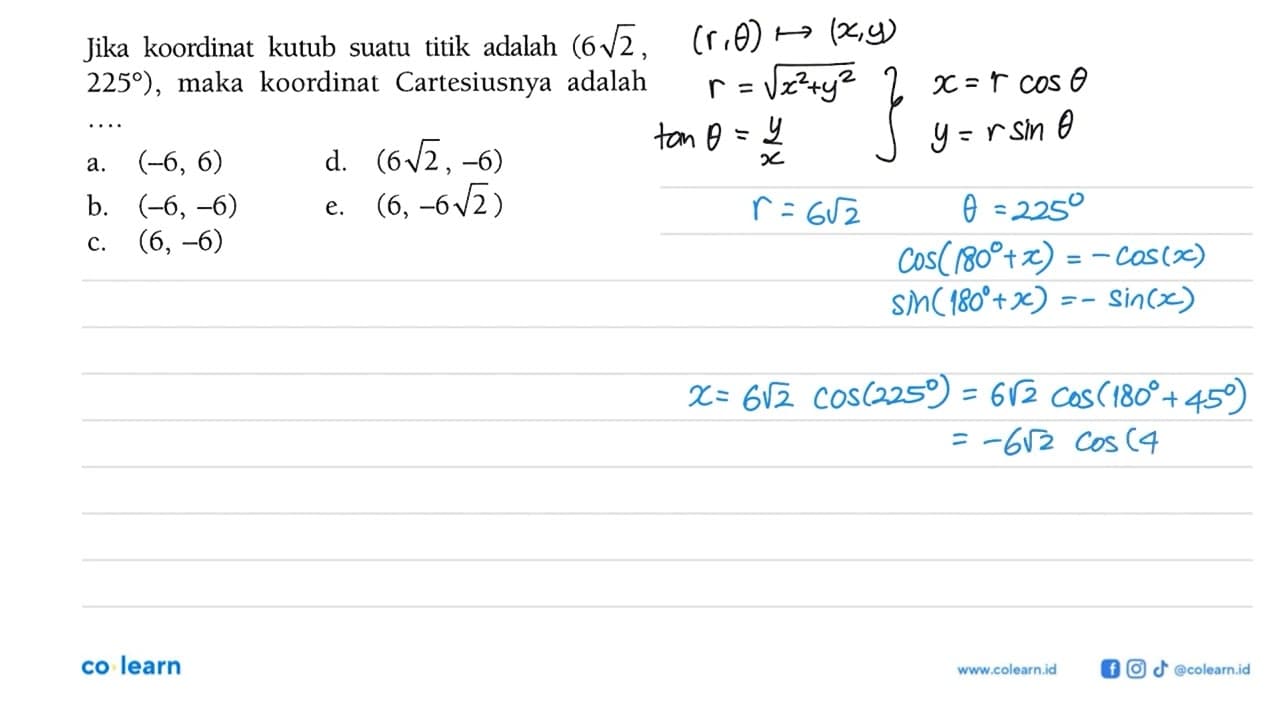 Jika koordinat kutub suatu titik adalah (6√2,
225°), maka koordinat Cartesiusnya adalah
....
a. (–6, 6)
b. (–6, –6)
c. (6, –6)
d. (6√2, –6)
e. (6, –6√2)
(r,θ) ↦ (x,y)
r = √x²+y²
tan θ = y/x
} x = r cos θ
y = r sin θ
r = 6√2 θ = 225°
cos(180°+x) = -cos(x)
sin(180°+x) = - sin(x)
x = 6√2 cos(225°) = 6√2 cos(180°+45°)
= -6√2 cos(4
co learn
www.colearn.id @colearn.id